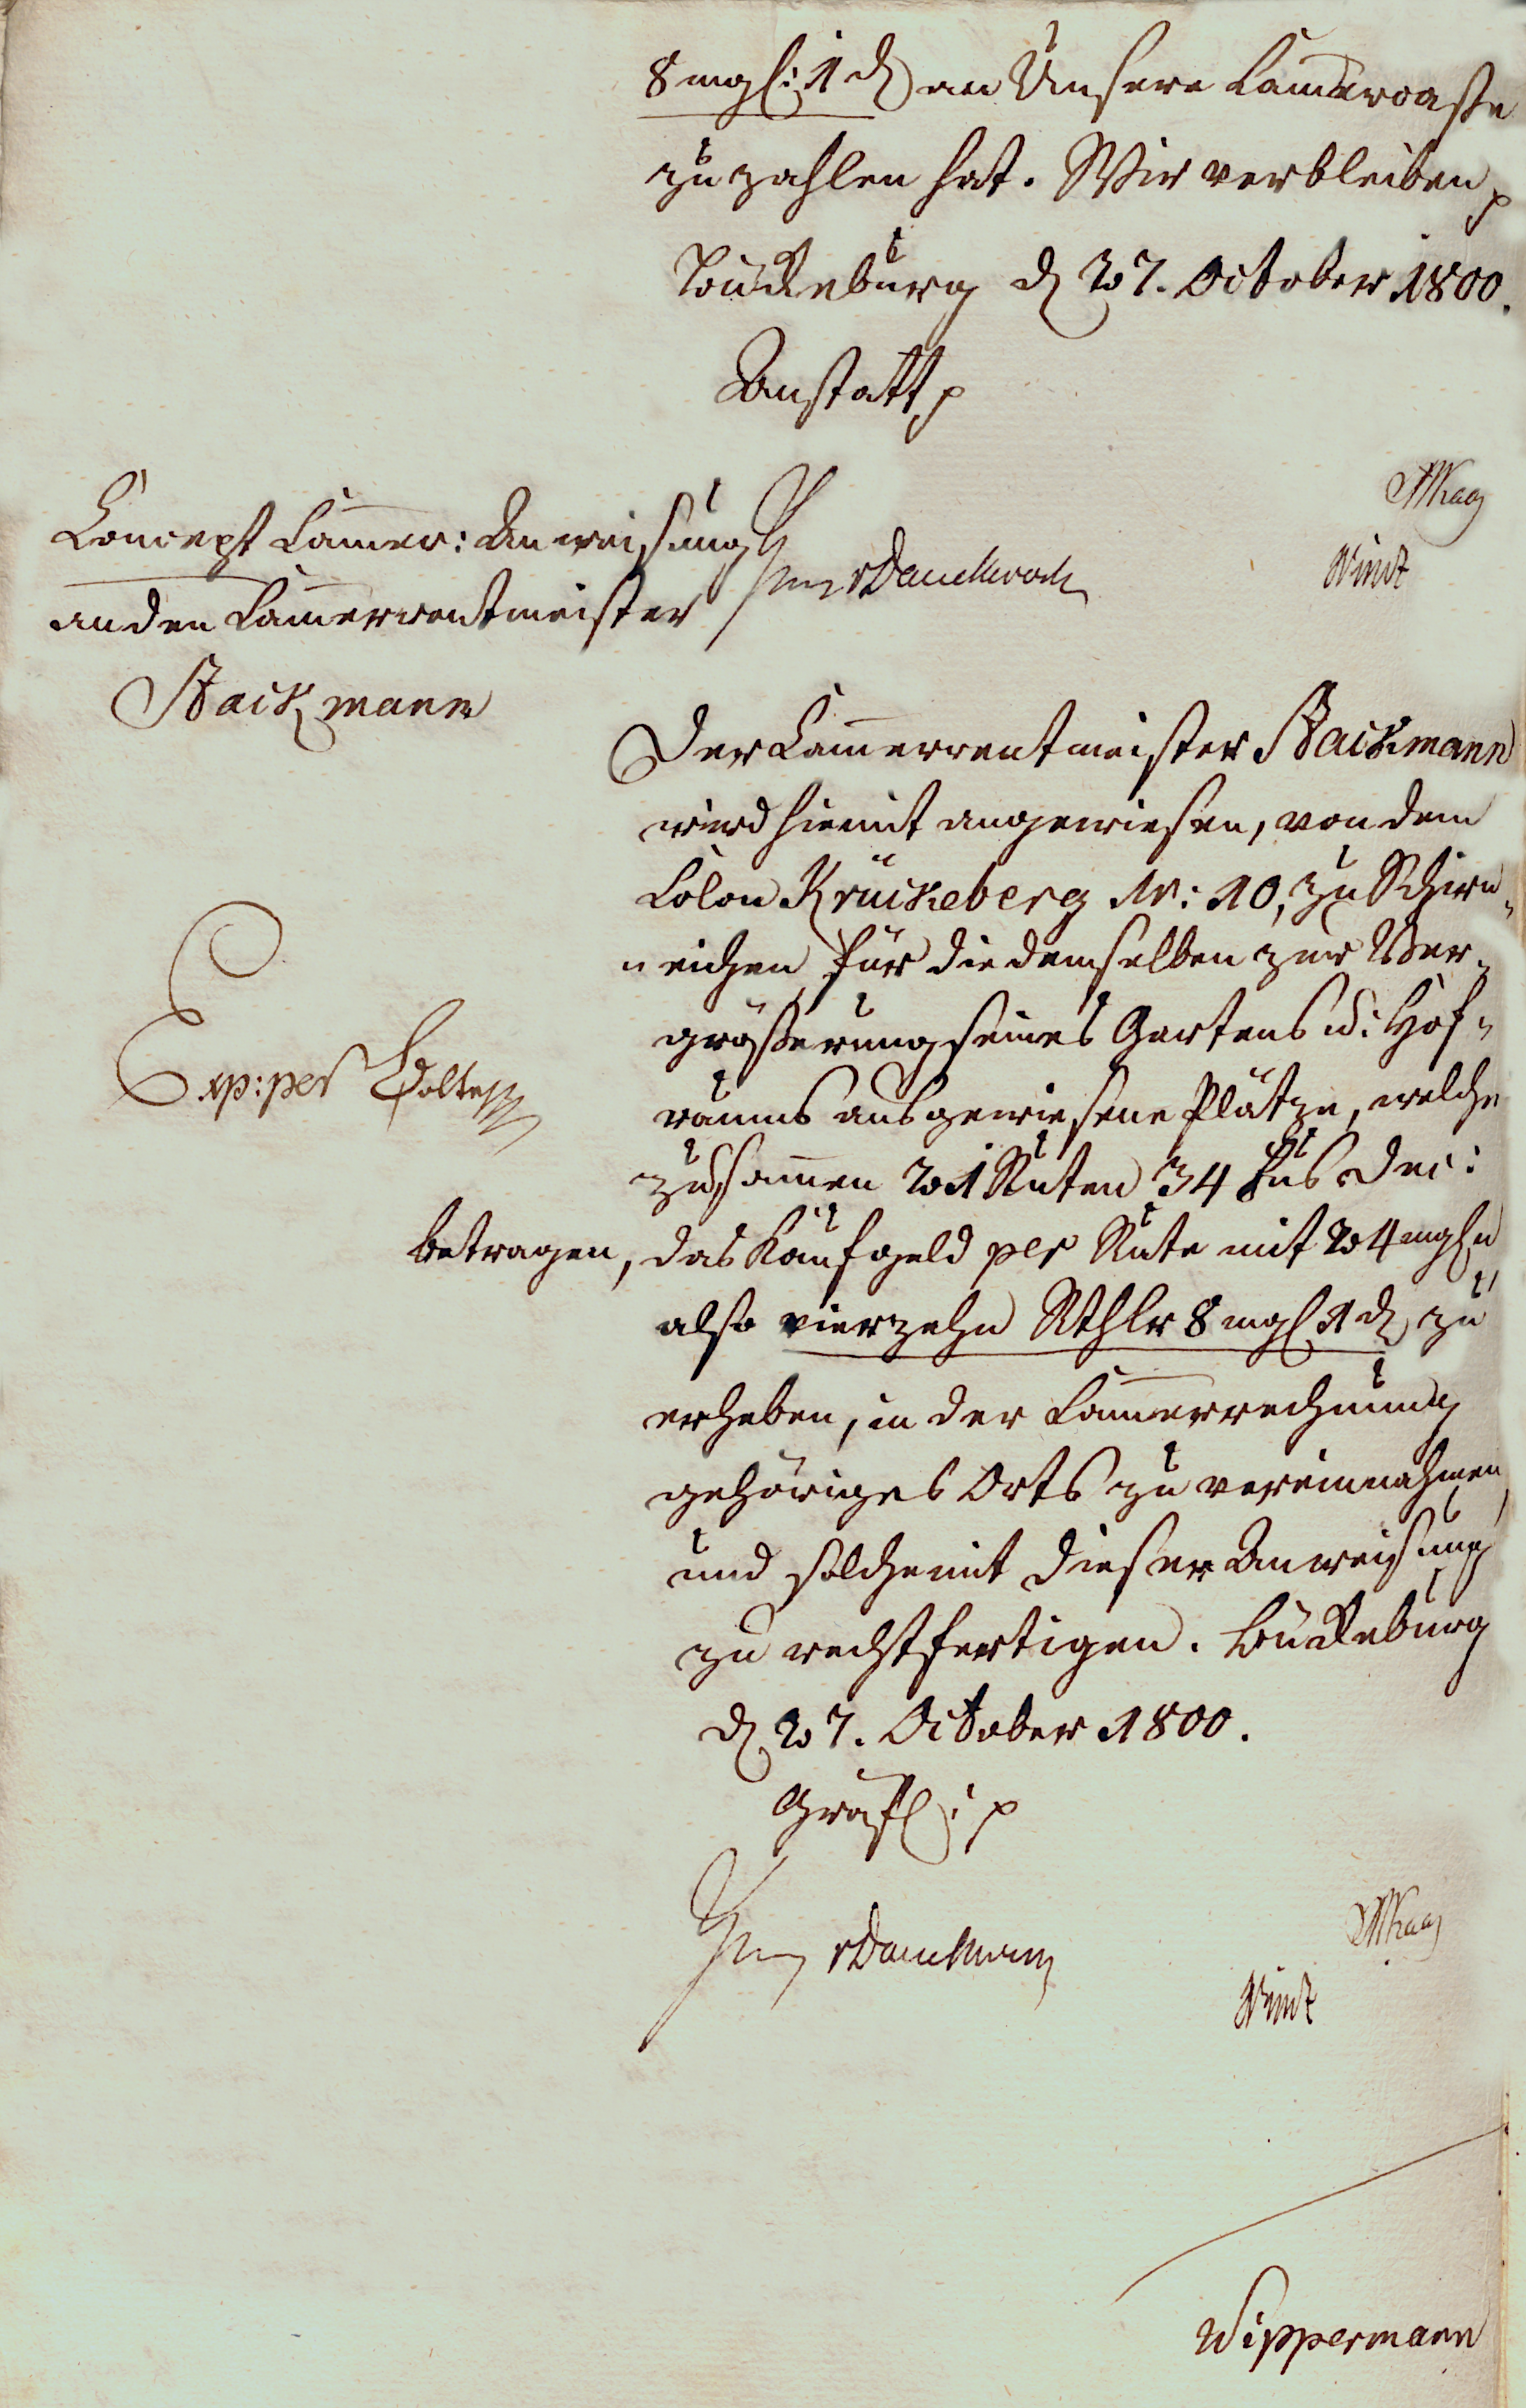 8 mgl: 1 d an Unsere Cammercasse
zu zahlen hat. Wir verbleiben p
Bückeburg d 27. October 1800.
Anstatt p
Concept Cammer: Anweisung
an den Cammerrentmeister
Stackmann
Der Cammerrentmeister Stackmann
wird hiemit angewiesen, von dem
Colon Krückeberg Nr: 10, zu Schier„
„neichen für die demselben zur Ver„
größerung seines Gartens u: Hof„
raums ausgewiesene Plätze, welche
Exp: per Bolte
zusammen 21 Ruten 34 Fus Dec:
betragen, das Kaufgeld per Rute mit 24 mgln
also vierzehn Rthlr 8 mgl 1 d zu
erheben, in der Cammerrechnung
gehöriges Orts zu vereinnahmen
und solche mit dieser Anweisung
zu rechtfertigen. Bückeburg
d 27. October 1800.
Gräfl: p
Wippermann